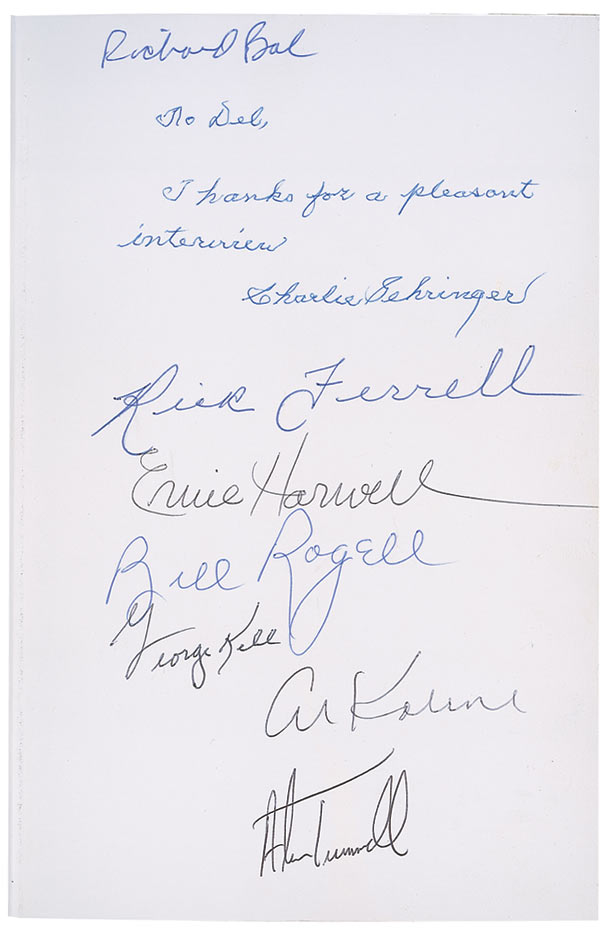 Richard Bak
To Del,
Thanks for a pleasant
interview
Charlie Gehringer
Rick Ferrell
Ernie Harwell
Bill Rogell
George Kell
Al Kaline
Alan Trammell